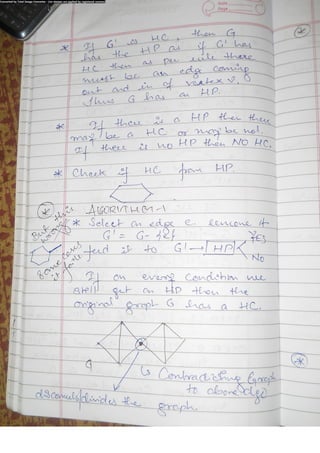 Converted by Total Image Converter - (to remove this text please buy registered version)
Date
* If G' is HC, then G
has the HP as if G' has
HC then as per rule there
must be an edge coming
out and in of vertex v.
thus G has an HP.
* If there is a HP then there
may be a HC or may be not.
If there is no HP then NO HC.
* Check if HC from HP.
ALGORITHM-1
But this is wrong
* Select an edge e. remove it
G' = G - {e}
feed it to G' → HP < YES
NO
some cases it fails
If on every condition we
still get an HP then the
original graph G has a HC.
↳ Contradicting Graph
to above algo
disconnects/divides the graph.